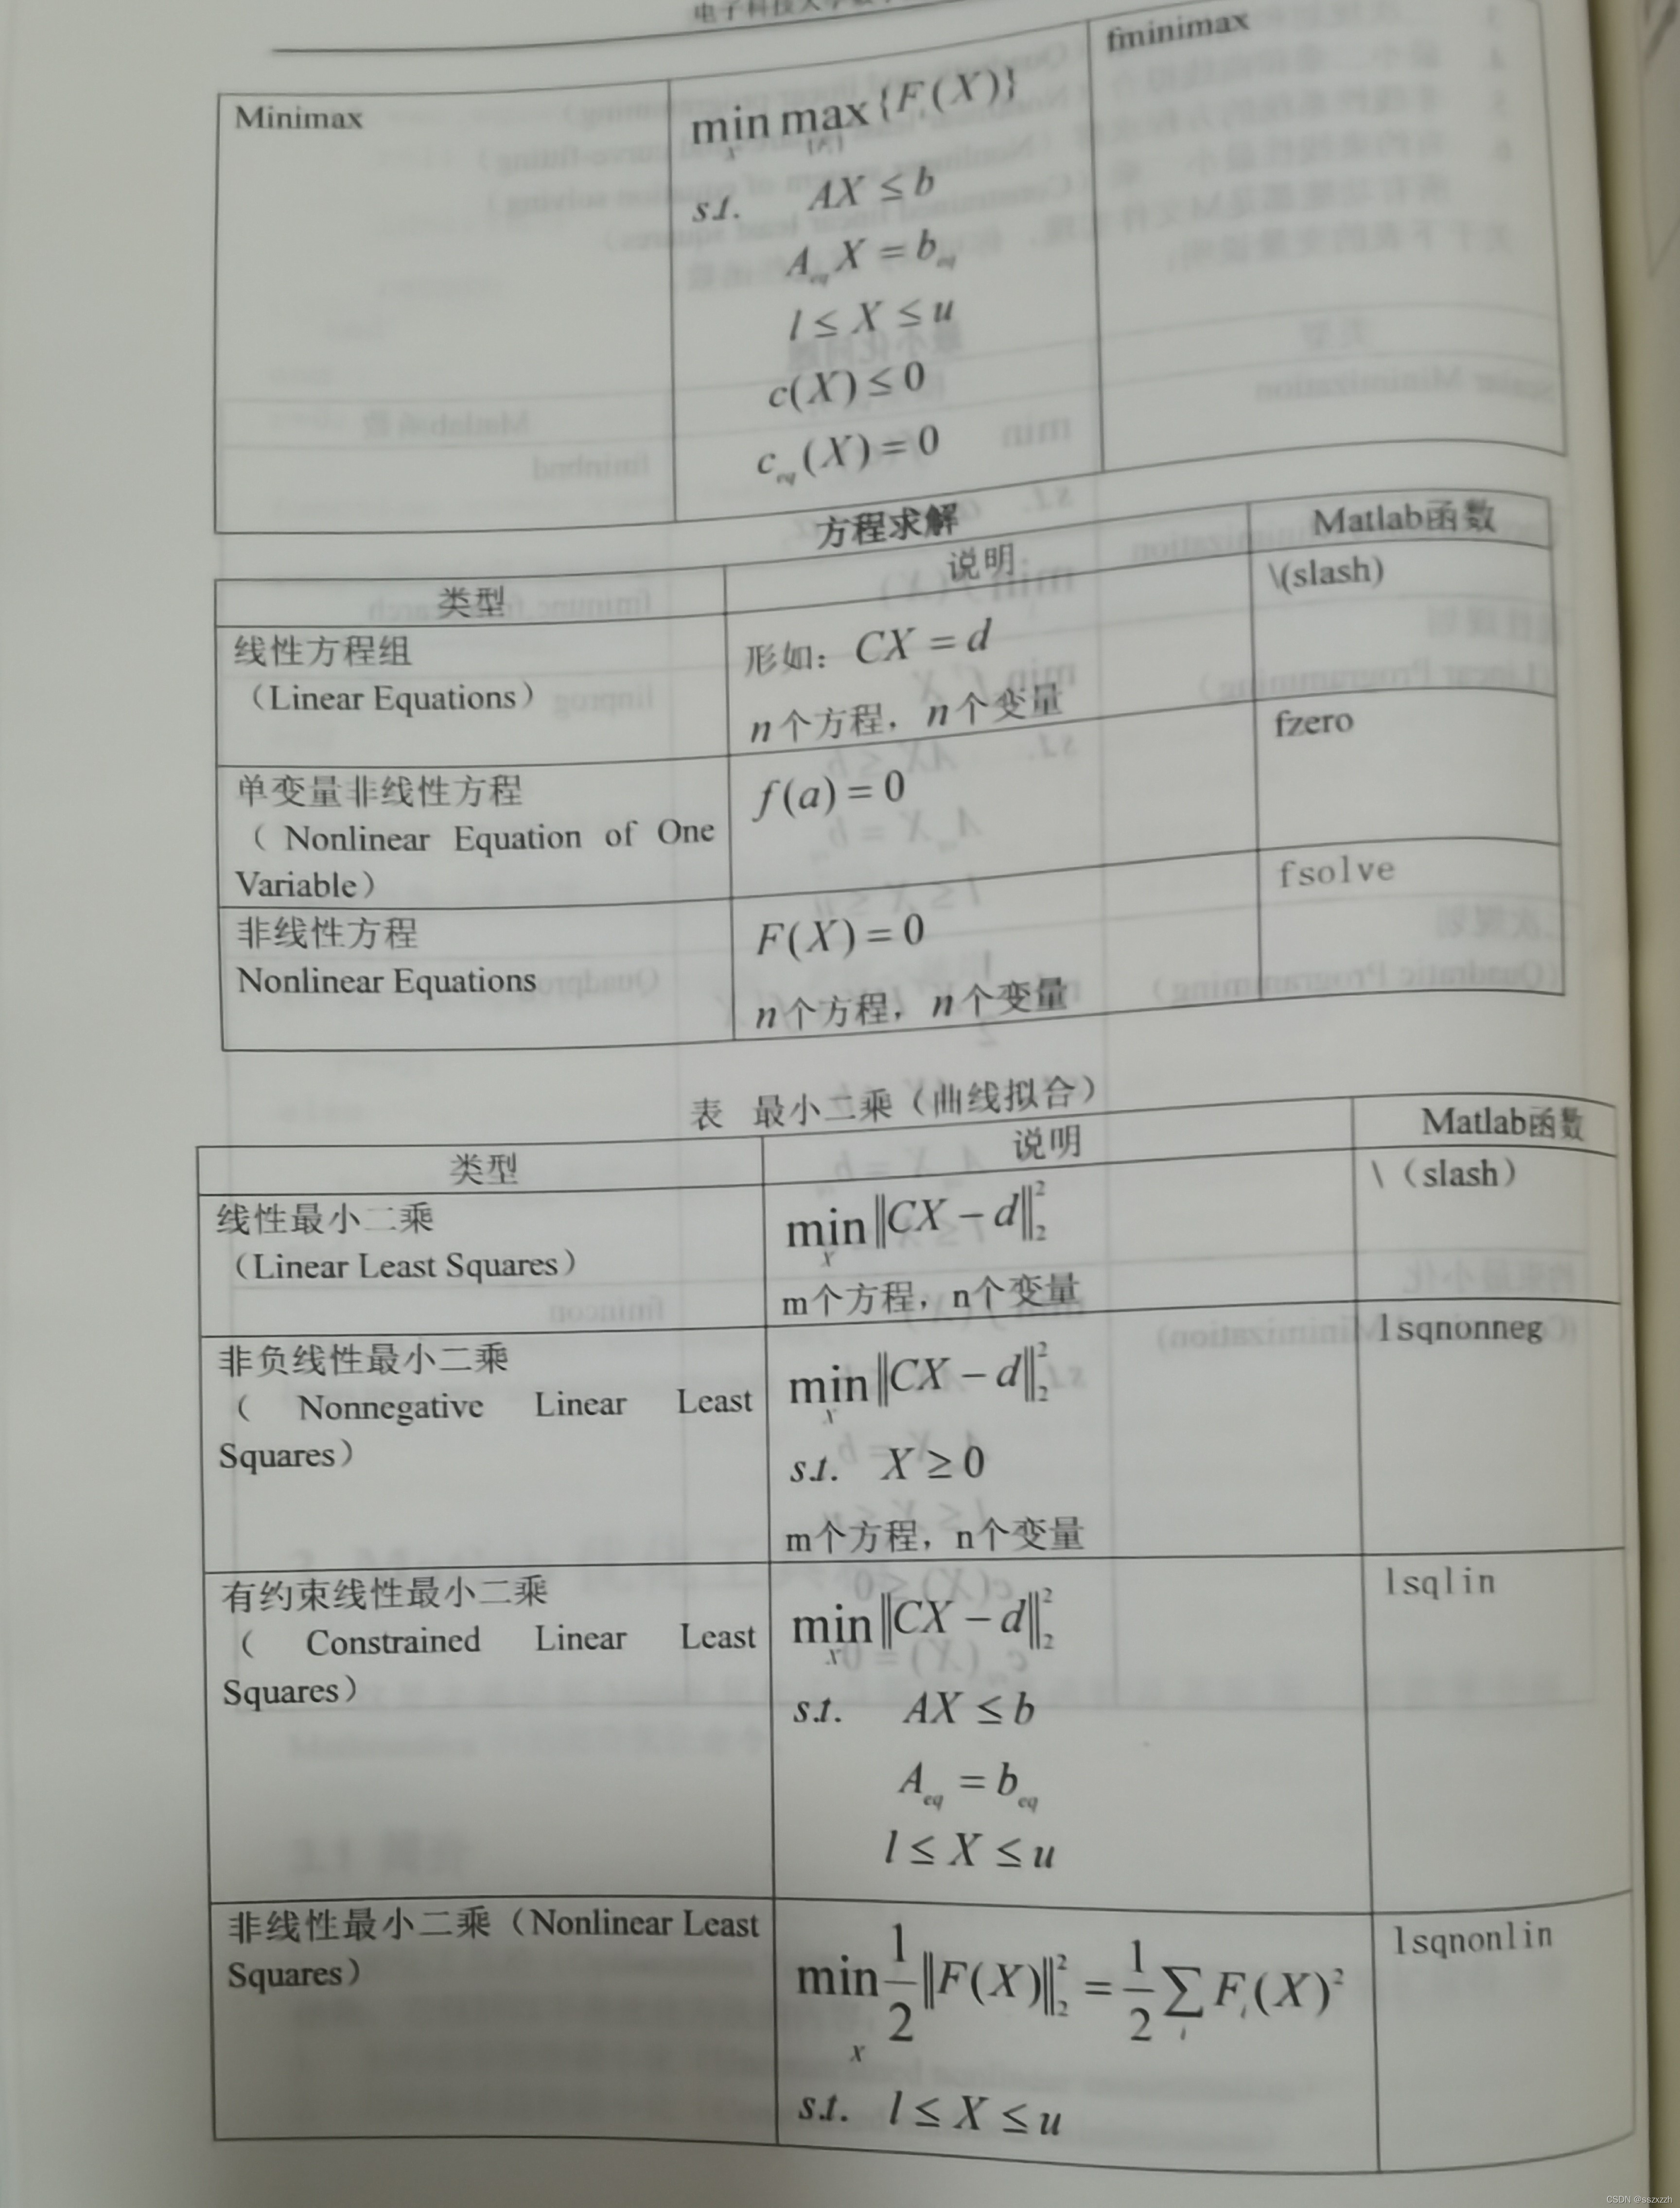 电子科技大学数
Minimax
fminimax
min max {F_i(X)}
x {F_i}
s.t. AX ≤ b
A_eq X = b_eq
l ≤ X ≤ u
c(X) ≤ 0
c_eq(X) = 0
方程求解
类型 说明 Matlab函数
线性方程组
（Linear Equations）
形如： CX = d
n个方程，n个变量
\(slash)
单变量非线性方程
（ Nonlinear Equation of One
Variable）
f(a) = 0
fzero
非线性方程
Nonlinear Equations
F(X) = 0
n个方程，n个变量
fsolve
表 最小二乘（曲线拟合）
类型 说明 Matlab函数
线性最小二乘
（Linear Least Squares）
min_x ‖CX − d‖₂²
m个方程，n个变量
\（slash）
非负线性最小二乘
（ Nonnegative Linear Least
Squares）
min_x ‖CX − d‖₂²
s.t. X ≥ 0
m个方程，n个变量
lsqnonneg
有约束线性最小二乘
（ Constrained Linear Least
Squares）
min_x ‖CX − d‖₂²
s.t. AX ≤ b
A_eq = b_eq
l ≤ X ≤ u
lsqlin
非线性最小二乘（Nonlinear Least
Squares）
min_x 1/2 ‖F(X)‖₂² = 1/2 ∑_i F_i(X)²
s.t. l ≤ X ≤ u
lsqnonlin
CSDN @sszxzzh